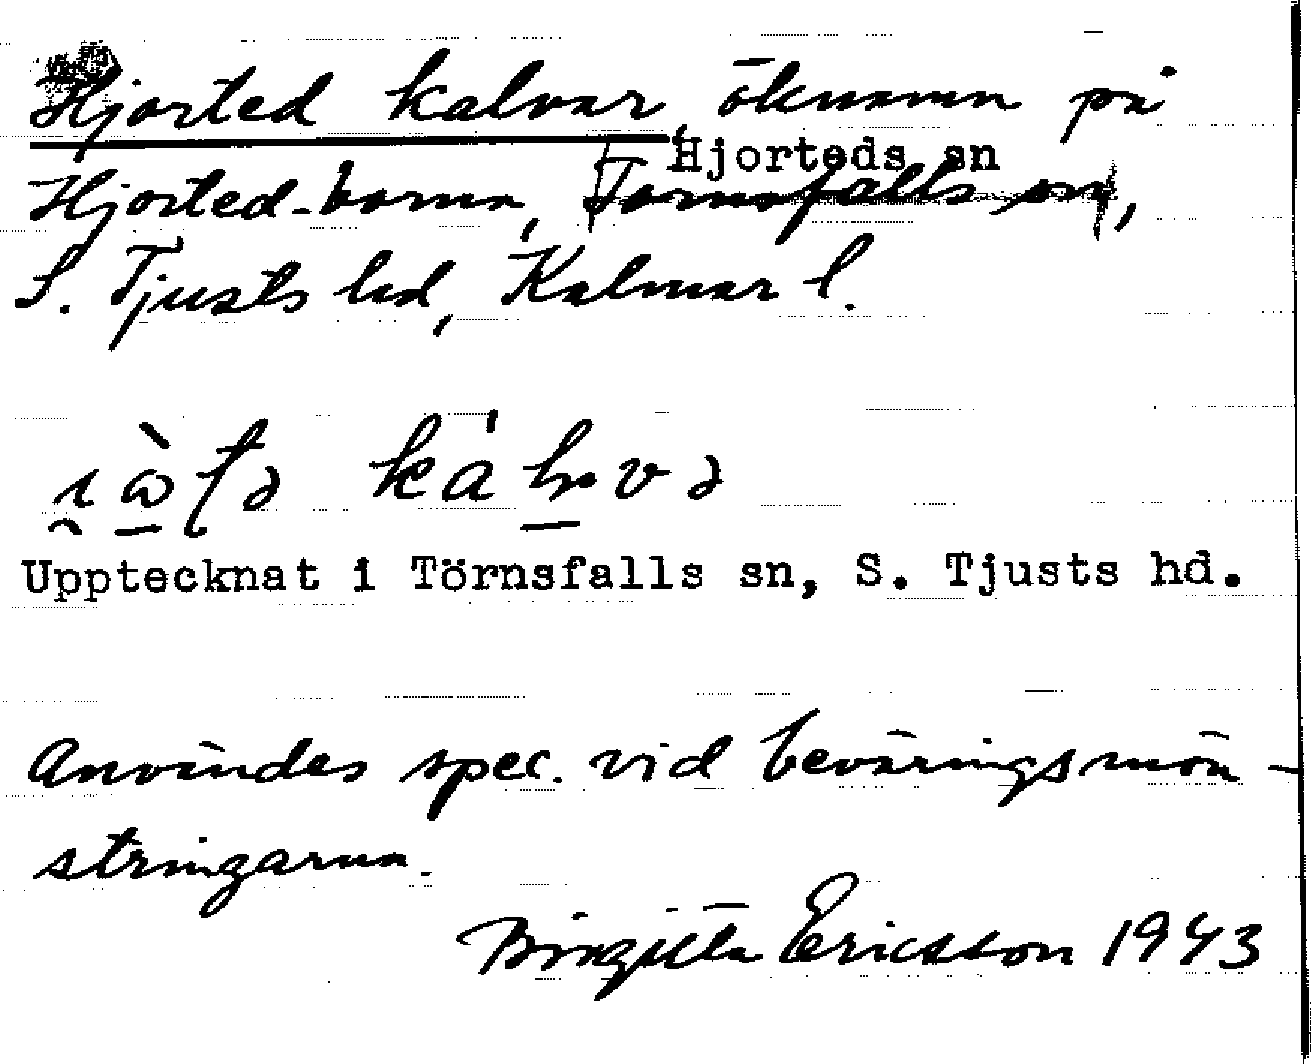 Hjorted kalvar, öknamn på
Hjorteds sn
Hjorted-borna, Törnsfalls sn,
S. Tjusts hd, Kalmar l.
Upptecknat i Törnsfalls sn, S. Tjusts hd.
Användes spec. vid beväringsmön-
stringarna.
Birgitta Ericsson 1943